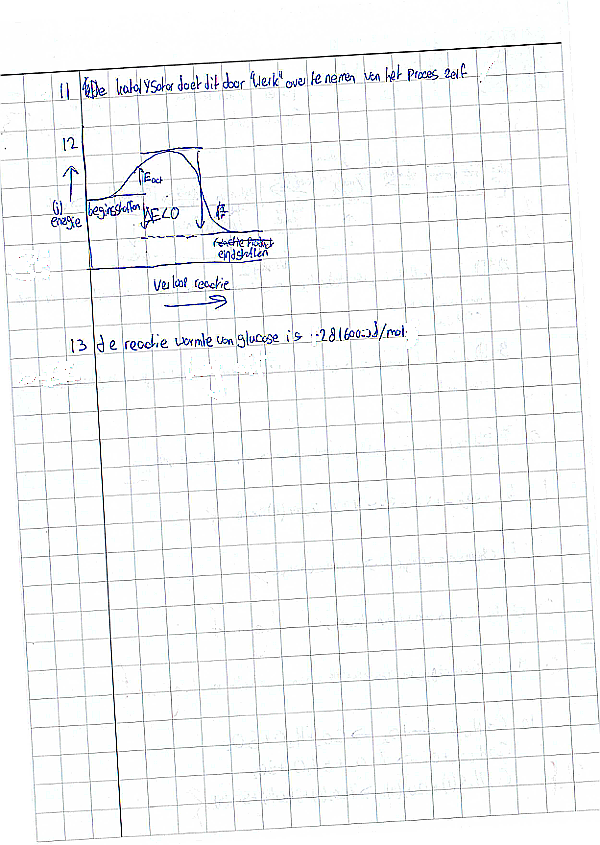 11 De katalysator doet dit door "werk" over te nemen van het proces zelf.
12
Eact
(J)
energie
beginstoffen
ΔE<0
reactie
eindstoffen
verloop reactie
13 de reactie warmte van glucose is
J/mol.